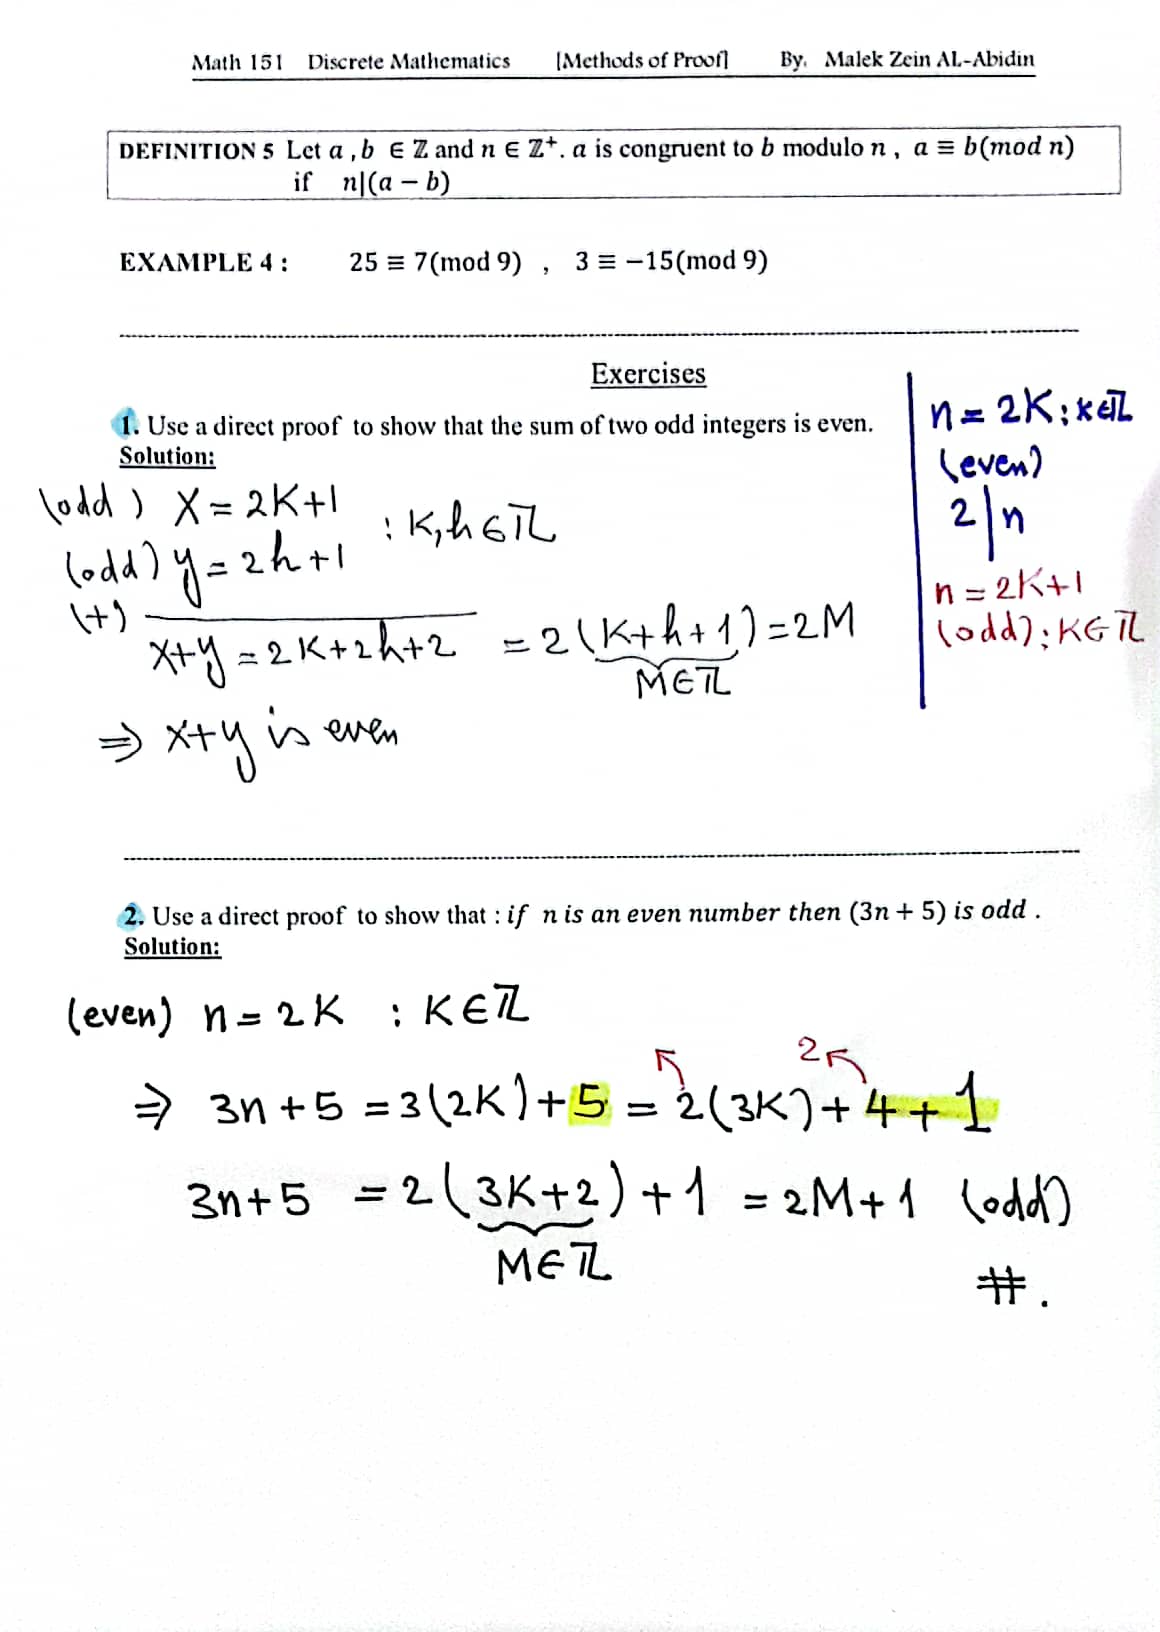 Math 151 Discrete Mathematics [Methods of Proof] By. Malek Zein AL-Abidin
DEFINITION 5 Let a , b ∈ ℤ and n ∈ ℤ⁺. a is congruent to b modulo n , a ≡ b(mod n)
if n|(a − b)
EXAMPLE 4 : 25 ≡ 7(mod 9) , 3 ≡ −15(mod 9)
Exercises
1. Use a direct proof to show that the sum of two odd integers is even.
Solution:
(odd) X = 2K+1
(odd) y = 2h+1 : K,h ∈ ℤ
(+)
x+y = 2K+2h+2 = 2(K+h+1) = 2M
M∈ℤ
⇒ x+y is even
n = 2K ; K∈ℤ
(even)
2|n
n = 2K+1
(odd) ; K∈ℤ
2. Use a direct proof to show that : if n is an even number then (3n + 5) is odd .
Solution:
(even) n = 2K : K∈ℤ
2
⇒ 3n+5 = 3(2K)+5 = 2(3K)+4+1
3n+5 = 2(3K+2)+1 = 2M+1 (odd)
M∈ℤ
#.